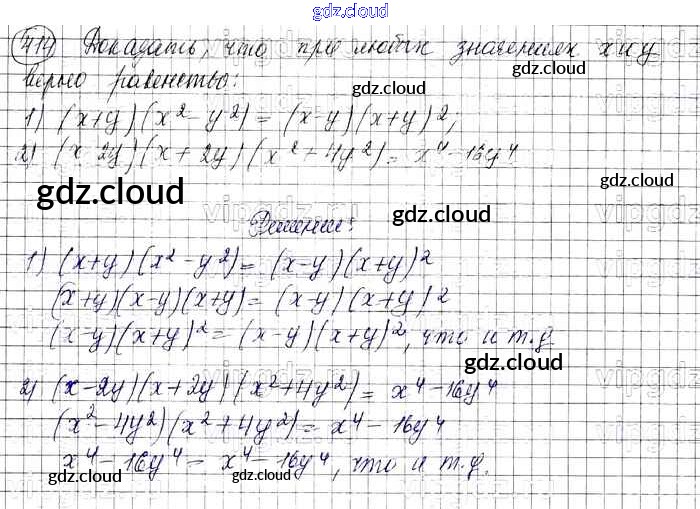 gdz.cloud
414 Доказать, что при любых значениях x и y
верно равенство:
gdz.cloud
gdz.cloud
1) (x+y)(x² - y²) = (x-y)(x+y)²;
2) (x-2y)(x+2y)(x²+4y²) = x⁴-16y⁴
gdz.cloud
gdz.cloud
gdz.cloud
Решение:
1) (x+y)(x²-y²) = (x-y)(x+y)²
gdz.cloud
(x+y)(x-y)(x+y) = (x-y)(x+y)²
(x-y)(x+y)² = (x-y)(x+y)², что и т.д
gdz.cloud
gdz.cloud
2) (x-2y)(x+2y)(x²+4y²) = x⁴-16y⁴
(x²-4y²)(x²+4y²) = x⁴-16y⁴
x⁴-16y⁴ = x⁴-16y⁴, что и т.д.
gdz.cloud
gdz.cloud